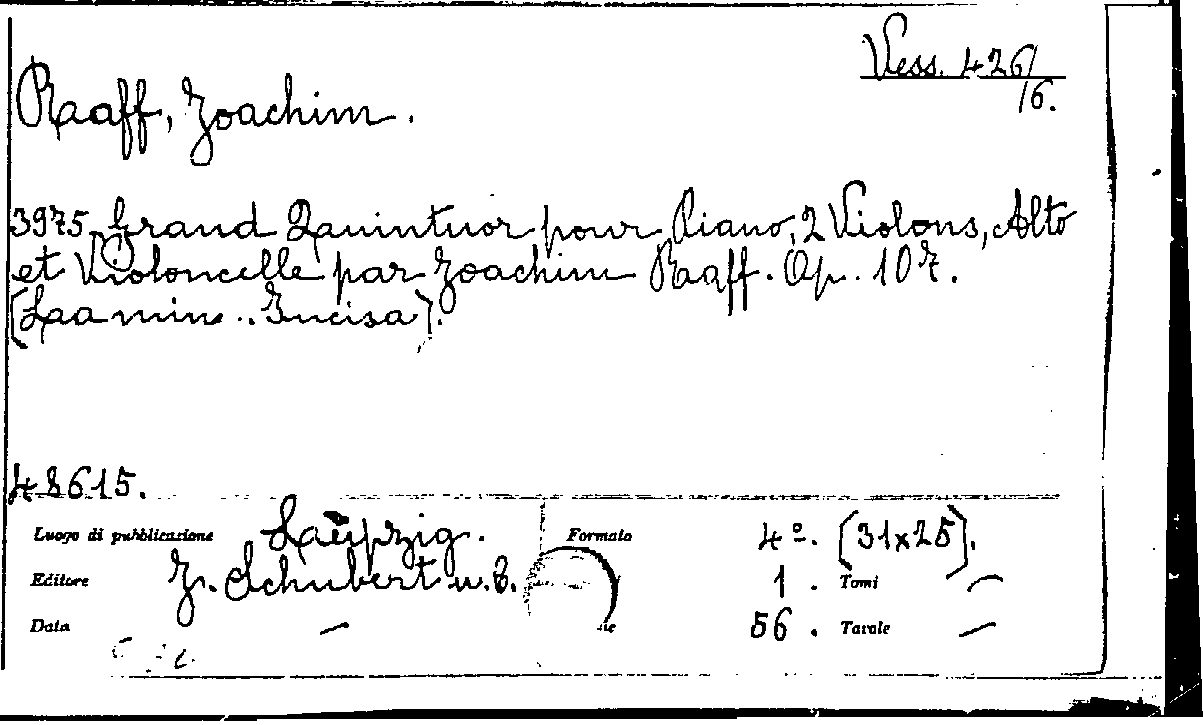 Vess. 426/
16.
Raaff, Joachim.
3975. Grand Qauintuor pour Piano, 2 Violons, Alto
et Violoncelle par Joachim Raaff. Op. 107.
(La min.. Incisa).
48615.
Luogo di pubblicazione Leipzig. Formato 4º. (31x25).
Editore J. Schubert u. C. 1. Tomi —
Data — 56. Tavole —